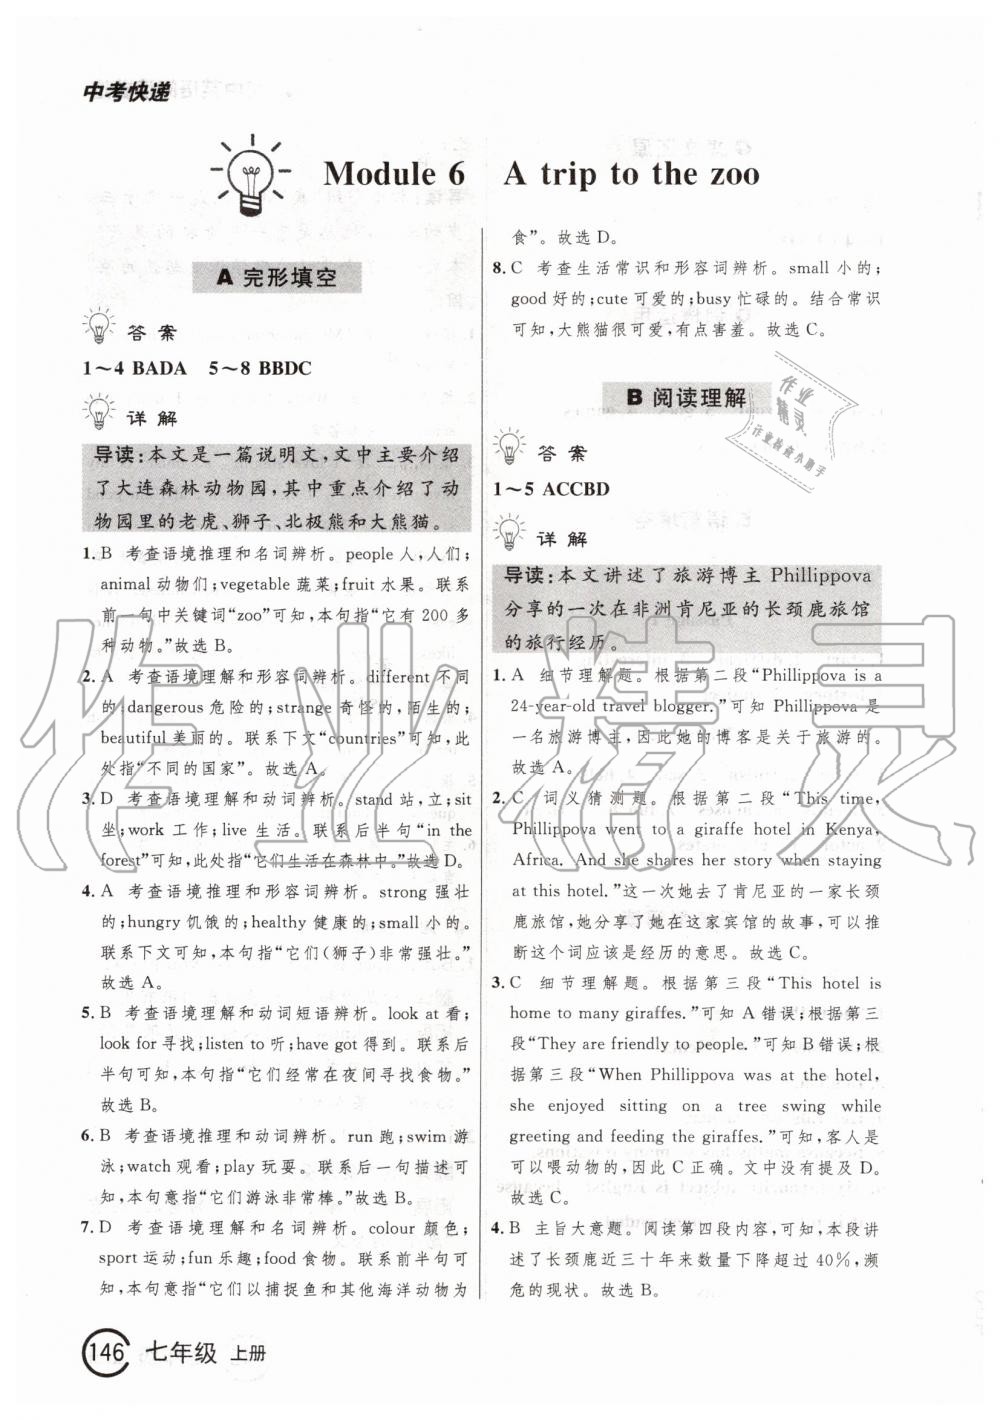 中考快递
Module 6 A trip to the zoo
A 完形填空
答案
1～4 BADA 5～8 BBDC
详解
导读:本文是一篇说明文,文中主要介绍
了大连森林动物园,其中重点介绍了动
物园里的老虎、狮子、北极熊和大熊猫。
1. B 考查语境推理和名词辨析。people 人,人们;
animal 动物们;vegetable 蔬菜;fruit 水果。联系
前一句中关键词“zoo”可知,本句指“它有 200 多
种动物。”故选 B。
2. A 考查语境理解和形容词辨析。different 不同
的;dangerous 危险的;strange 奇怪的,陌生的;
beautiful 美丽的。联系下文“countries”可知,此
处指“不同的国家”。故选 A。
3. D 考查语境理解和动词辨析。stand 站,立;sit
坐;work 工作;live 生活。联系后半句“in the
forest”可知,此处指“它们生活在森林中。”故选 D。
4. A 考查语境推理和形容词辨析。strong 强壮
的;hungry 饥饿的;healthy 健康的;small 小的。
联系下文可知,本句指“它们(狮子)非常强壮。”
故选 A。
5. B 考查语境理解和动词短语辨析。look at 看;
look for 寻找;listen to 听;have got 得到。联系后
半句可知,本句指“它们经常在夜间寻找食物。”
故选 B。
6. B 考查语境推理和动词辨析。run 跑;swim 游
泳;watch 观看;play 玩耍。联系后一句描述可
知,本句意指“它们游泳非常棒。”故选 B。
7. D 考查语境理解和名词辨析。colour 颜色;
sport 运动;fun 乐趣;food 食物。联系前半句可
知,本句意指“它们以捕捉鱼和其他海洋动物为
食”。故选 D。
8. C 考查生活常识和形容词辨析。small 小的;
good 好的;cute 可爱的;busy 忙碌的。结合常识
可知,大熊猫很可爱,有点害羞。故选 C。
B 阅读理解
答案
1～5 ACCBD
详解
导读:本文讲述了旅游博主 Phillippova
分享的一次在非洲肯尼亚的长颈鹿旅馆
的旅行经历。
1. A 细节理解题。根据第二段“Phillippova is a
24-year-old travel blogger.”可知 Phillippova 是
一名旅游博主,因此她的博客是关于旅游的。
故选 A。
2. C 词义猜测题。根据第二段“This time,
Phillippova went to a giraffe hotel in Kenya,
Africa. And she shares her story when staying
at this hotel.”这一次她去了肯尼亚的一家长颈
鹿旅馆,她分享了她在这家宾馆的故事,可以推
断这个词应该是经历的意思。故选 C。
3. C 细节理解题。根据第三段“This hotel is
home to many giraffes.”可知 A 错误;根据第三
段“They are friendly to people.”可知 B错误;根
据第三段“When Phillippova was at the hotel,
she enjoyed sitting on a tree swing while
greeting and feeding the giraffes.”可知,客人是
可以喂动物的,因此 C 正确。文中没有提及 D。
故选 C。
4. B 主旨大意题。阅读第四段内容,可知,本段讲
述了长颈鹿近三十年来数量下降超过 40%,濒
危的现状。故选 B。
作业
精灵
作业检查小助手
作业精灵
146 七年级 上册